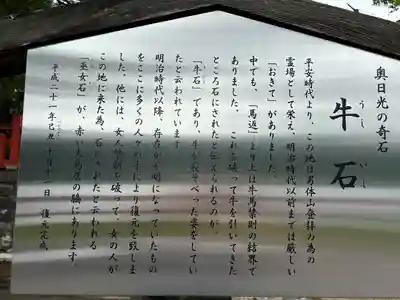 奥日光の奇石
牛石
うし いし
平安時代より、この地は男体山登拝の為の
霊場として栄え、明治時代以前までは厳しい
「おきて」がありました。
中でも、「馬返」より上は牛馬禁制の結界で
ありました。これを破って牛を引いてきた
ところ石にされたと伝されるのが、
「牛石」であり、牛が寝そべった姿をしてい
たと云われています
明治時代以降、存在が不明になっていたもの
をここに多くの人々の手により復元を致しま
した。他には、女人禁制を破って、女の人が
この地に来た為、石にされたと云われる
「巫女石」が、赤い大鳥居の脇にあります。
平成二十一年己丑十月十一日 復元完成